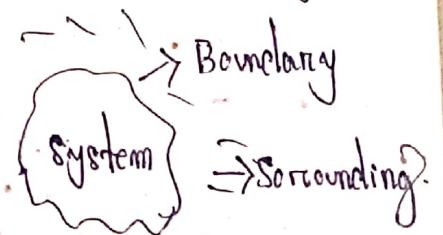 Boundary
System
Sorrounding.